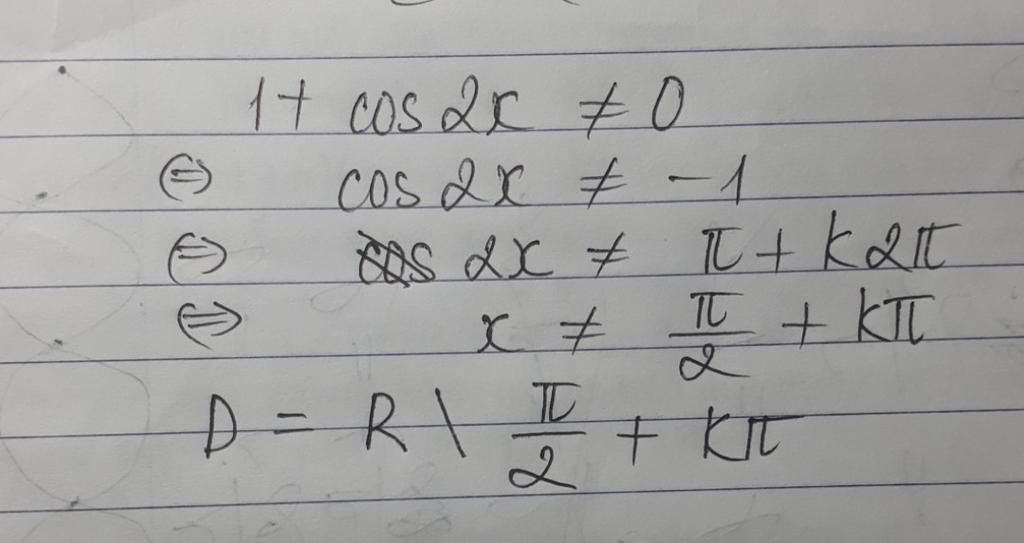 1 + cos 2x ≠ 0
⇔ cos 2x ≠ -1
⇔ 2x ≠ π + k2π
⇔ x ≠ π/2 + kπ
D = R \ π/2 + kπ